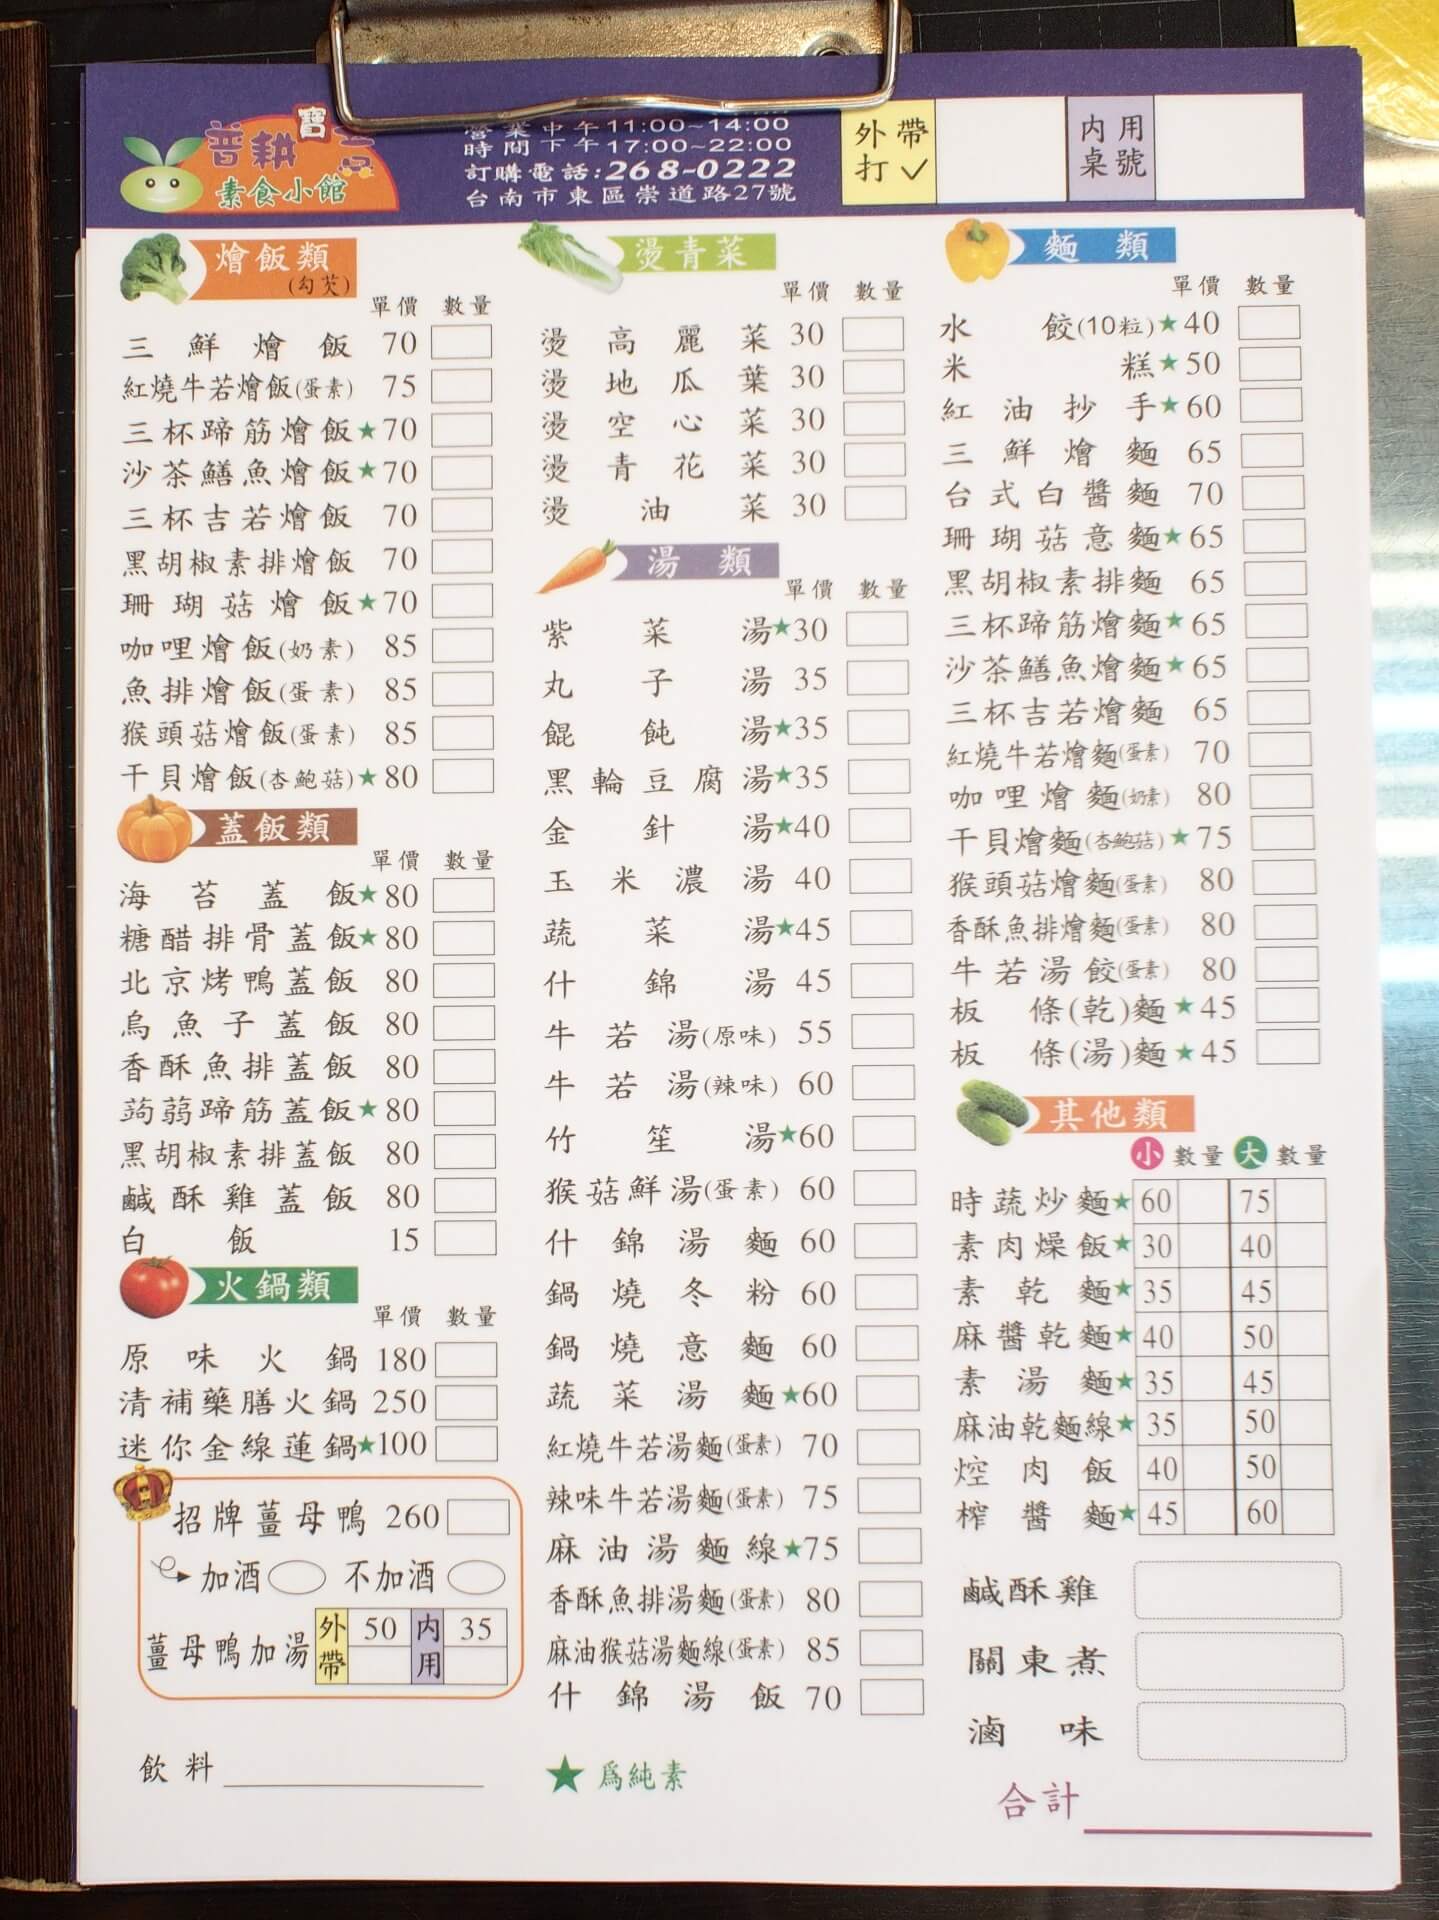 普耕寶
素食小館
營業中午11:00~14:00
時間下午17:00~22:00
訂購電話:268-0222
台南市東區崇道路27號
外帶打✓
內用桌號
燴飯類
(勾芡)
單價 數量
三鮮燴飯 70
紅燒牛若燴飯(蛋素) 75
三杯蹄筋燴飯★70
沙茶鱔魚燴飯★70
三杯吉若燴飯 70
黑胡椒素排燴飯 70
珊瑚菇燴飯★70
咖哩燴飯(奶素) 85
魚排燴飯(蛋素) 85
猴頭菇燴飯(蛋素) 85
干貝燴飯(杏鮑菇)★80
蓋飯類
單價 數量
海苔蓋飯★80
糖醋排骨蓋飯★80
北京烤鴨蓋飯 80
烏魚子蓋飯 80
香酥魚排蓋飯 80
蒟蒻蹄筋蓋飯★80
黑胡椒素排蓋飯 80
鹹酥雞蓋飯 80
白飯 15
火鍋類
單價 數量
原味火鍋 180
清補藥膳火鍋 250
迷你金線蓮鍋★100
招牌薑母鴨 260
加酒 不加酒
薑母鴨加湯 外帶 50 內用 35
飲料
燙青菜
單價 數量
燙高麗菜 30
燙地瓜葉 30
燙空心菜 30
燙青花菜 30
燙油菜 30
湯類
單價 數量
紫菜湯★30
丸子湯 35
餛飩湯★35
黑輪豆腐湯★35
金針湯★40
玉米濃湯 40
蔬菜湯★45
什錦湯 45
牛若湯(原味) 55
牛若湯(辣味) 60
竹笙湯★60
猴菇鮮湯(蛋素) 60
什錦湯麵 60
鍋燒冬粉 60
鍋燒意麵 60
蔬菜湯麵★60
紅燒牛若湯麵(蛋素) 70
辣味牛若湯麵(蛋素) 75
麻油湯麵線★75
香酥魚排湯麵(蛋素) 80
麻油猴菇湯麵線(蛋素) 85
什錦湯飯 70
★為純素
麵類
單價 數量
水餃(10粒)★40
米糕★50
紅油抄手★60
三鮮燴麵 65
台式白醬麵 70
珊瑚菇意麵★65
黑胡椒素排麵 65
三杯蹄筋燴麵★65
沙茶鱔魚燴麵★65
三杯吉若燴麵 65
紅燒牛若燴麵(蛋素) 70
咖哩燴麵(奶素) 80
干貝燴麵(杏鮑菇)★75
猴頭菇燴麵(蛋素) 80
香酥魚排燴麵(蛋素) 80
牛若湯餃(蛋素) 80
板條(乾)麵★45
板條(湯)麵★45
其他類
小 數量 大 數量
時蔬炒麵★60 75
素肉燥飯★30 40
素乾麵★35 45
麻醬乾麵★40 50
素湯麵★35 45
麻油乾麵線★35 50
焢肉飯 40 50
榨醬麵★45 60
鹹酥雞
關東煮
滷味
合計